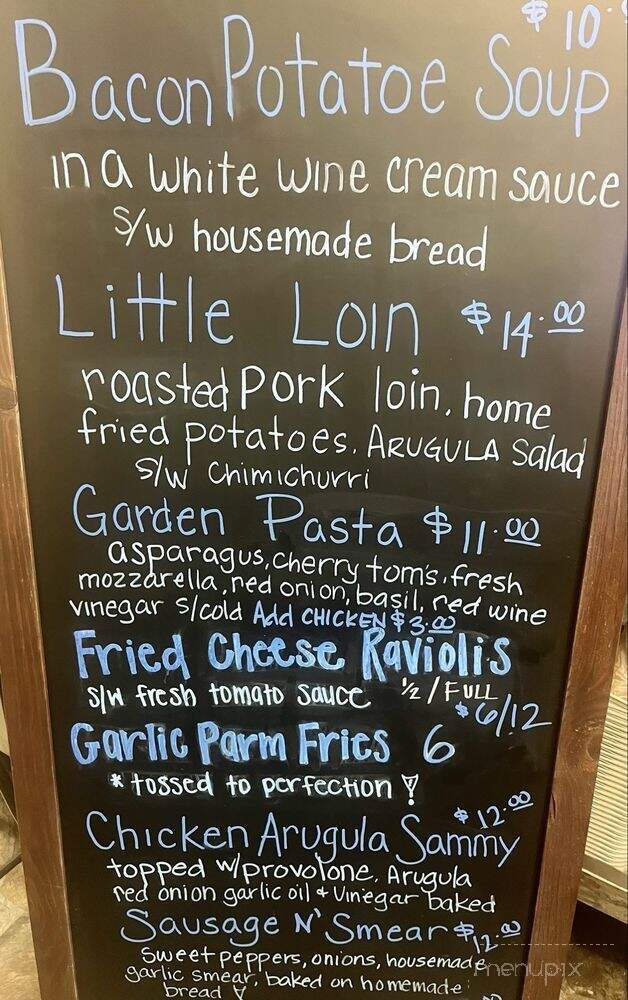 $10.
Bacon Potatoe Soup
in a white wine cream sauce
s/w housemade bread
Little Loin $14.00
roasted pork loin, home
fried potatoes, ARUGULA salad
s/w chimichurri
Garden Pasta $11.00
asparagus, cherry tom's, fresh
mozzarella, red onion, basil, red wine
vinegar s/cold Add CHICKEN $3.00
Fried Cheese Raviolis
s/w fresh tomato sauce ½ / FULL
$6/12
Garlic Parm Fries 6
*tossed to perfection!
$12.00
Chicken Arugula Sammy
topped w/provolone, Arugula
red onion garlic oil + vinegar baked
Sausage N' Smear $12.00
sweet peppers, onions, housemade
garlic smear, baked on homemade
bread
menupix